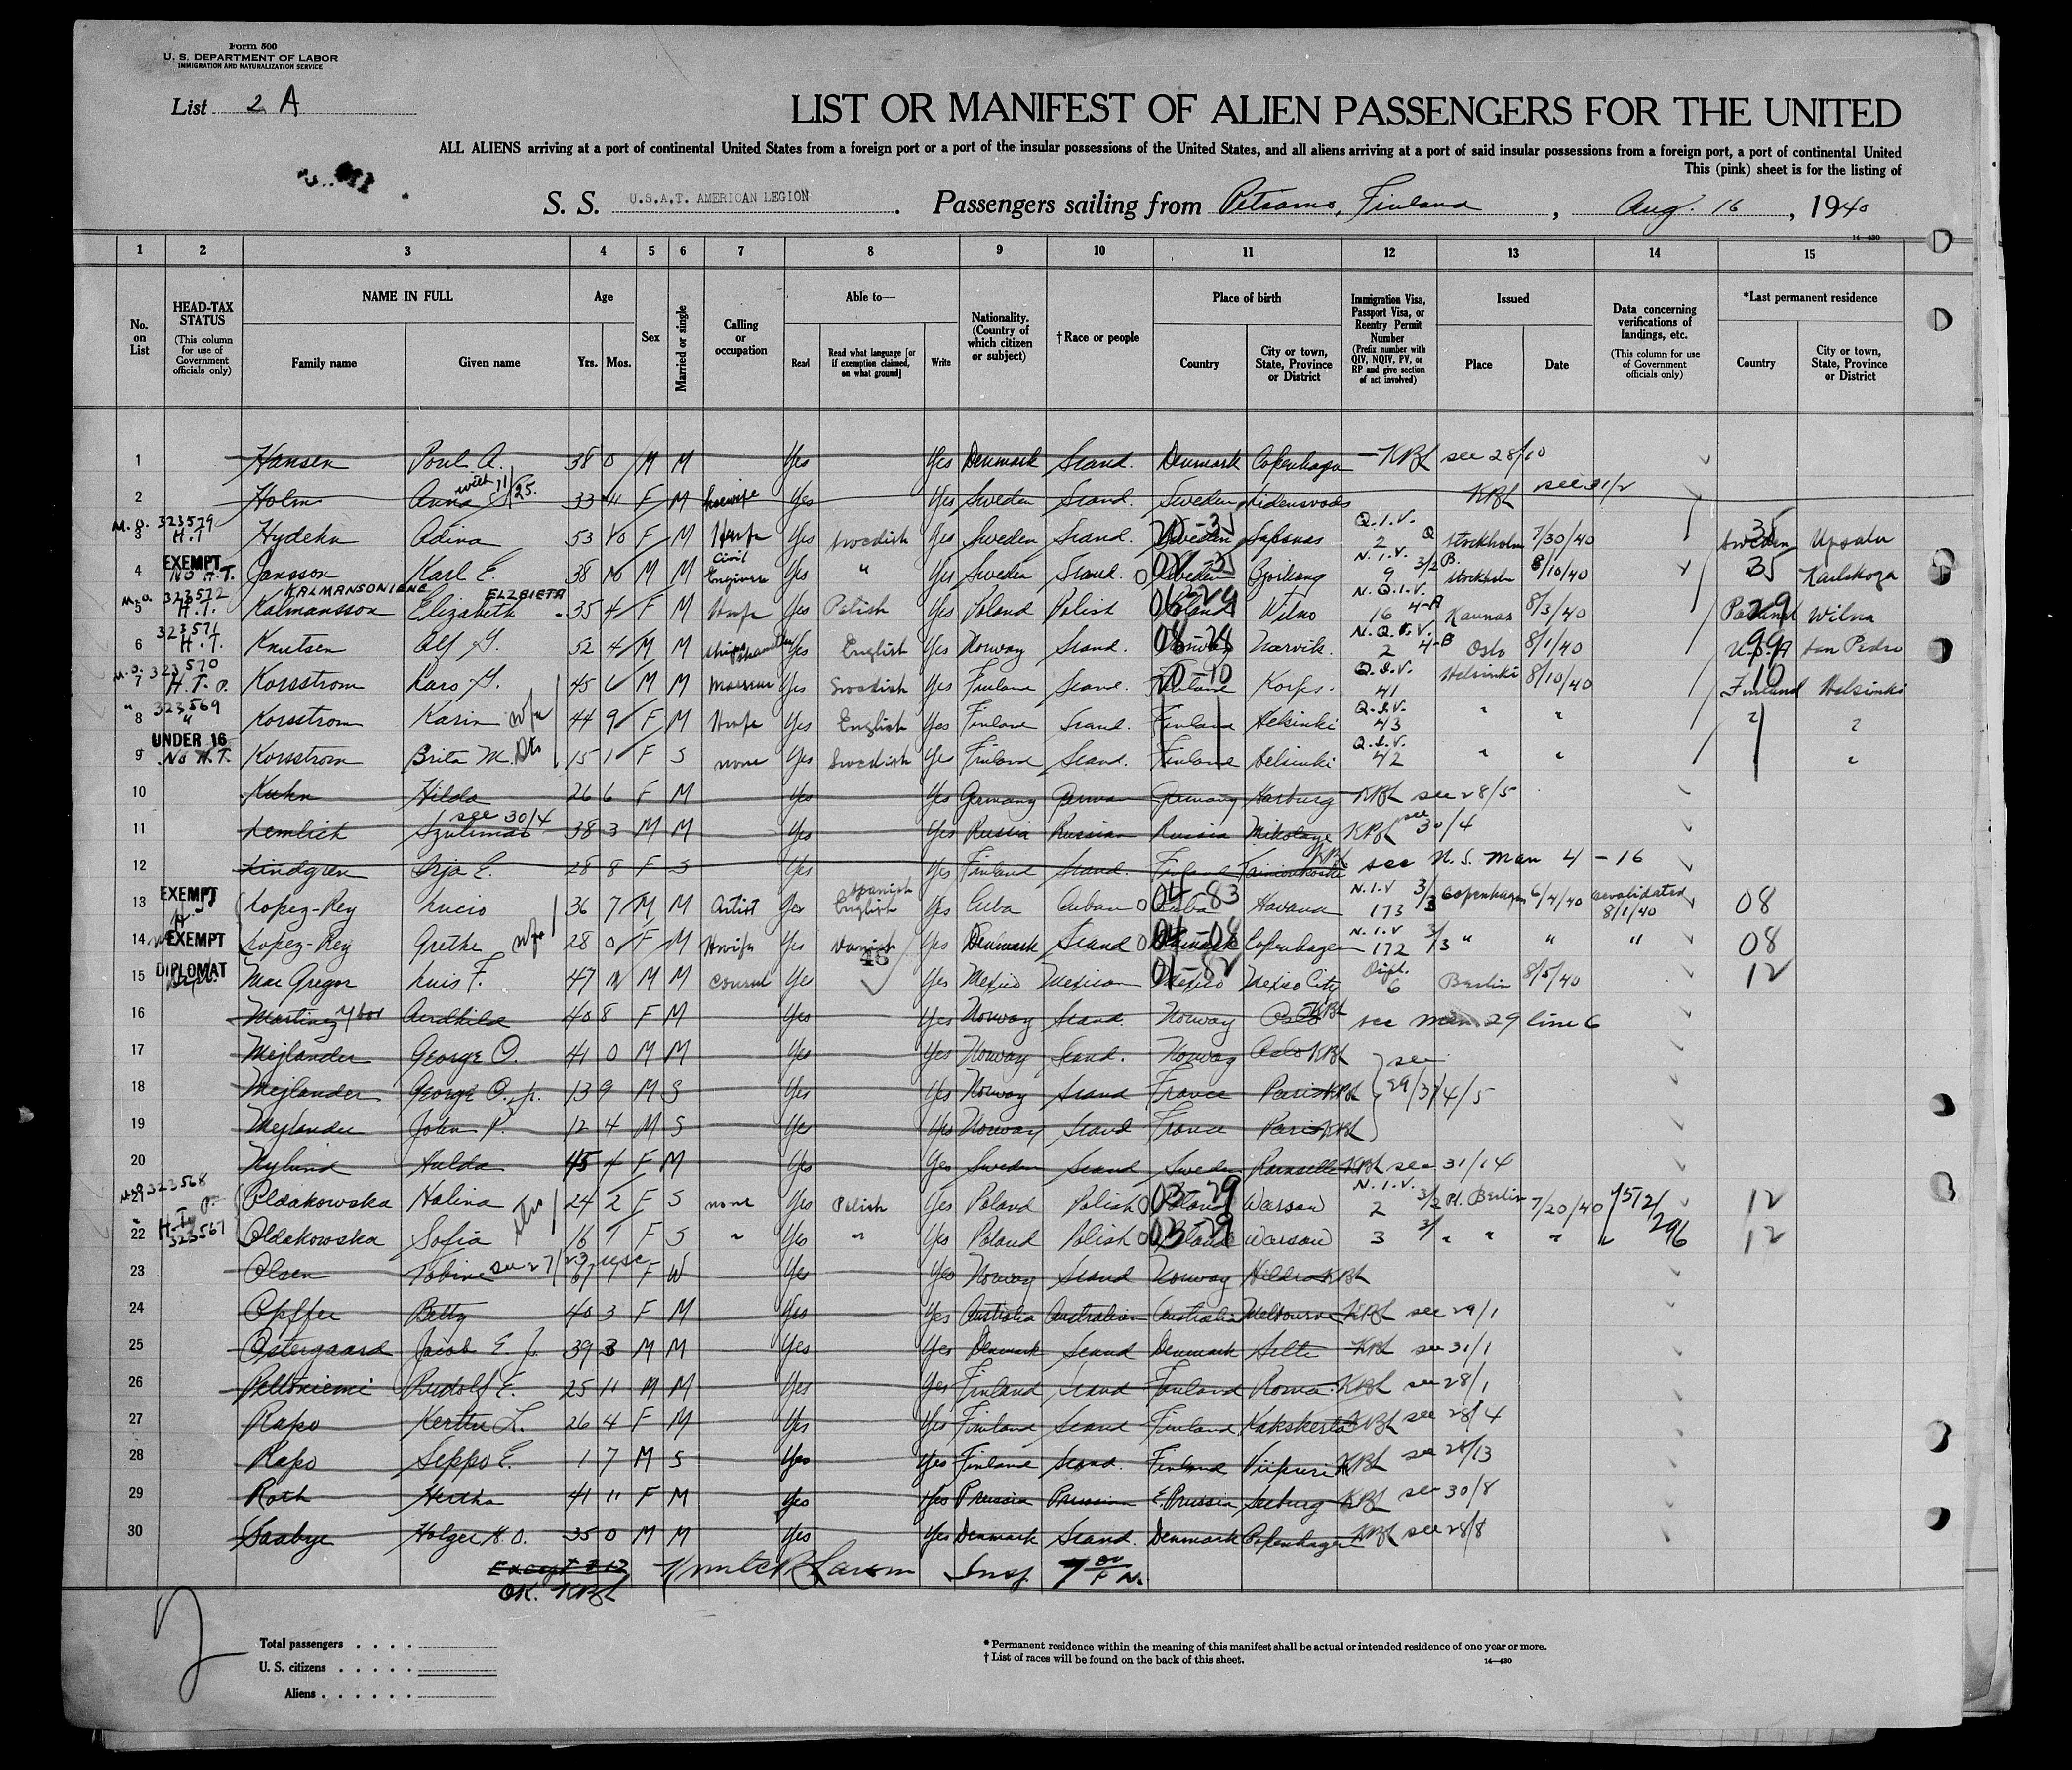 Form 500
U. S. DEPARTMENT OF LABOR
IMMIGRATION AND NATURALIZATION SERVICE
List 2 A
LIST OR MANIFEST OF ALIEN PASSENGERS FOR THE UNITED
ALL ALIENS arriving at a port of continental United States from a foreign port or a port of the insular possessions of the United States, and all aliens arriving at a port of said insular possessions from a foreign port, a port of continental United
This (pink) sheet is for the listing of
S. S. U.S.A.T. AMERICAN LEGION. Passengers sailing from Petsamo, Finland, Aug. 16, 1940
14—430
1 2 3 4 5 6 7 8 9 10 11 12 13 14 15
No. on List
HEAD-TAX STATUS (This column for use of Government officials only)
NAME IN FULL Family name Given name
Age Yrs. Mos.
Sex
Married or single
Calling or occupation
Able to— Read Read what language [or if exemption claimed, on what ground] Write
Nationality. (Country of which citizen or subject)
†Race or people
Place of birth Country City or town, State, Province or District
Immigration Visa, Passport Visa, or Reentry Permit Number (Prefix number with QIV, NQIV, PV, or RP and give section of act involved)
Issued Place Date
Data concerning verifications of landings, etc. (This column for use of Government officials only)
*Last permanent residence Country City or town, State, Province or District
1 Hansen Poul A. 38 0 M M Yes Yes Denmark Scand. Denmark Copenhagen KBL see 28/10
2 Holm Anna with 11/25. 33 11 F M Housewife Yes Yes Sweden Scand. Sweden KBL see 31/2
M.O. 323579 H.T.
3 Hydehn Adina 53 10 F M Hwfe Yes Swedish Yes Sweden Scand. Sweden Q.I.V. 2 Stockholm 7/30/40 35 Sweden Upsala
EXEMPT NO H.T.
4 Jansson Karl E. 38 M M Civil Engineer Yes " Yes Sweden Scand. Sweden N.I.V. 9 3/2 B. Stockholm 8/10/40 35 Karlskoga
KALMANSONIENE ELZBIETA
M.O. 323572 H.T.
5 Kalmansson Elizabeth 35 4 F M Hwfe Yes Polish Yes Poland Polish Poland Wilno N.Q.I.V. 16 4-A Kaunas 8/3/40 29 Poland Wilna
323571 H.T.
6 Knutsen Alf G. 52 4 M M Yes English Yes Norway Scand. Norway Narvik N.Q.I.V. 2 4-B Oslo 8/1/40 99 U.S.A. San Pedro
M.O. 323570 H.T. P.
7 Korsstrom Karo G. 45 6 M M Masseur Yes Swedish Yes Finland Scand. 10-10 Finland Korpo. Q.I.V. 41 Helsinki 8/10/40 10 Finland Helsinki
" 323569 "
8 Korsstrom Karin wfe 44 9 F M Hwfe Yes English Yes Finland Scand. Finland Helsinki Q.I.V. 43 " " " "
UNDER 16 NO H.T.
9 Korsstrom Brita M. Dtr 15 1 F S none Yes Swedish Yes Finland Scand. Finland Helsinki Q.I.V. 42 " " "
10 Kuhn Hilda 26 6 F M Yes Yes Germany German Germany Harburg KBL see 28/5
11 Lemlich see 30/4 38 3 M M Yes Yes Russia Russian Russia KBL see 30/4
12 Lindgren Irja E. 28 8 F S Yes Yes Finland Scand. Finland KBL see N.S. Man 4 - 16
EXEMPT H.T.
13 Lopez-Rey Lucio 36 7 M M Artist Yes Spanish English Yes Cuba Cuban 04-83 Cuba Havana N.I.V 173 3/3 Copenhagen 6/4/40 revalidated 8/1/40 08
EXEMPT
14 Lopez-Rey Grethe wfe 28 0 F M Hwife Yes Danish Yes Denmark Scand 04-08 Denmark Copenhagen N.I.V 172 3/3 " " " 08
48
DIPLOMAT
15 Mac Gregor Luis F. 47 M M Consul Yes Yes Mexico Mexican 01-82 Mexico Mexico City Dipl. 6 Berlin 8/5/40 12
16 Martinez Aerdhilde 40 8 F M Yes Yes Norway Scand. Norway Oslo KBL see man 29 line 6
17 Mejlander George O. 41 0 M M Yes Yes Norway Scand. Norway Oslo KBL see
18 Mejlander George O., jr. 13 9 M S Yes Yes Norway Scand France Paris KBL 29/3/4/5
19 Mejlander John P. 12 4 M S Yes Yes Norway Scand France Paris KBL
20 Nylund Hulda 45 4 F M Yes Yes Sweden Scand Sweden KBL see 31/14
M.O. 323568
21 Oldakowska Halina 24 2 F S none Yes Polish Yes Poland Polish 03-29 Poland Warsaw N.I.V. 2 3/2 Berlin 7/20/40 12
H.T. P. 323567
22 Oldakowska Sofia 16 7 F S " Yes " Yes Poland Polish 03-29 Poland Warsaw 3 3/ " " " 12
23 Olsen Tobine see 27/23 usc 67 7 F W Yes Yes Norway Scand Norway Hildra KBL
24 Opffer Betty 40 3 F M Yes Yes Australia Australian Australia Melbourne KBL see 29/1
25 Ostergaard Jacob E. Jr. 39 3 M M Yes Yes Denmark Scand Denmark KBL see 31/1
26 Peltoniemi Rudolf E. 25 11 M M Yes Yes Finland Scand Finland KBL see 28/1
27 Rapo Kerttu L. 26 4 F M Yes Yes Finland Scand Finland Kakskerta KBL see 28/4
28 Rapo Seppo E. 1 7 M S Yes Yes Finland Scand. Finland Viipuri KBL see 28/13
29 Roth Hertha 41 11 F M Yes Yes Prussia Prussian E. Prussia Seeburg KBL see 30/8
30 Saabye Holger H.O. 35 0 M M Yes Yes Denmark Scand. Denmark Copenhagen KBL see 28/8
Except # 12
OK. KBL
Insp
2
Total passengers . . . .
U. S. citizens . . . . .
Aliens . . . . . .
* Permanent residence within the meaning of this manifest shall be actual or intended residence of one year or more.
† List of races will be found on the back of this sheet.
14—430